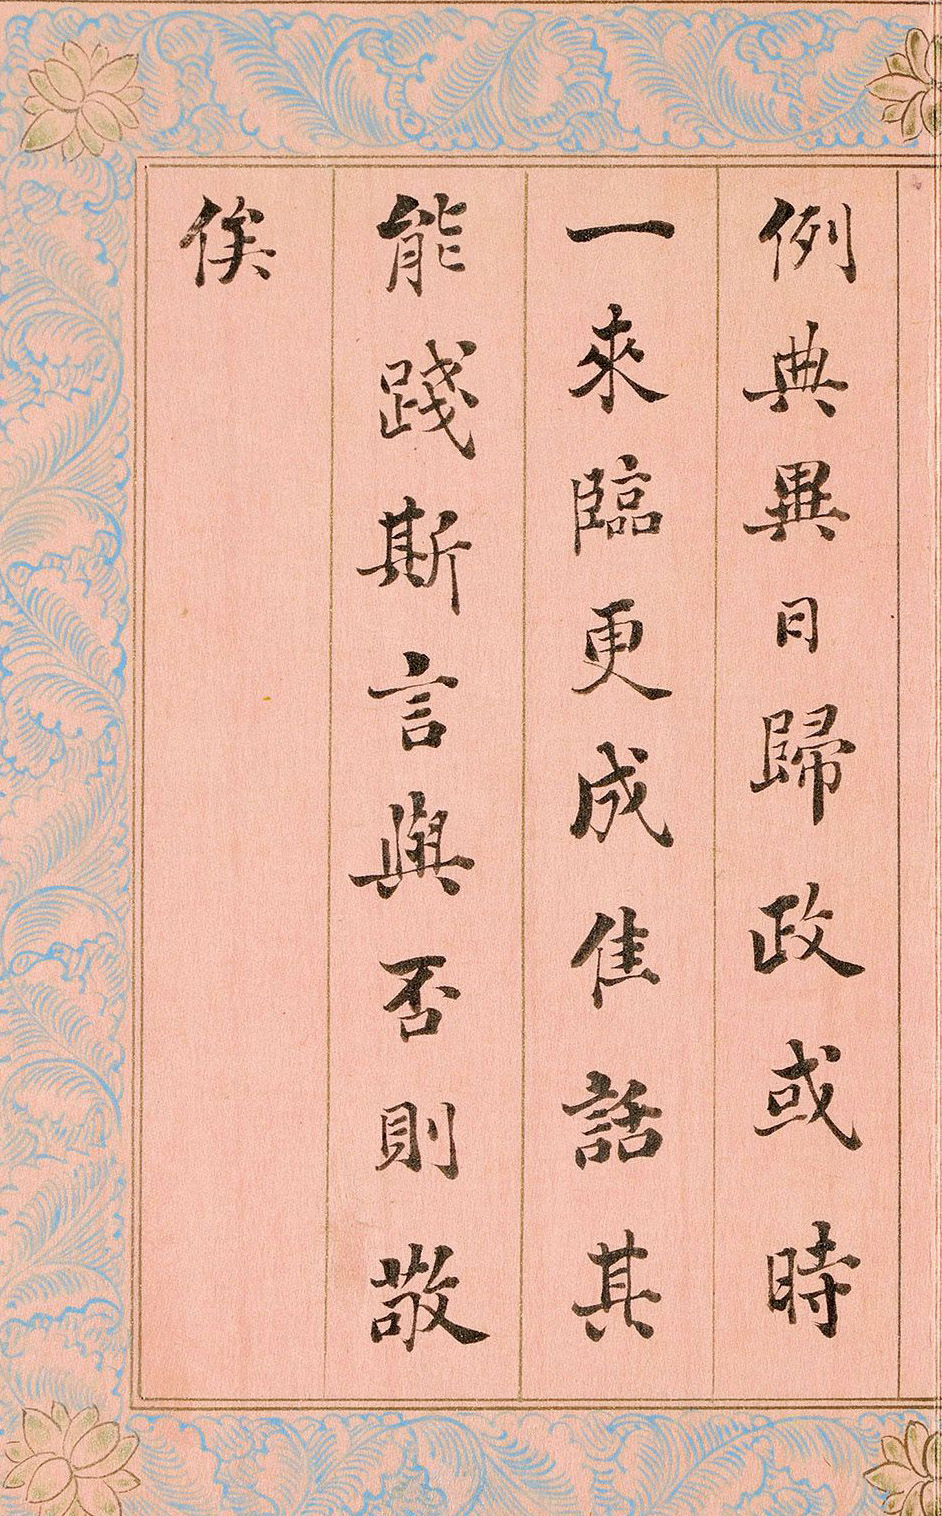 例典異日歸政或時
一來臨更成佳話其
能踐斯言與否則敬
俟